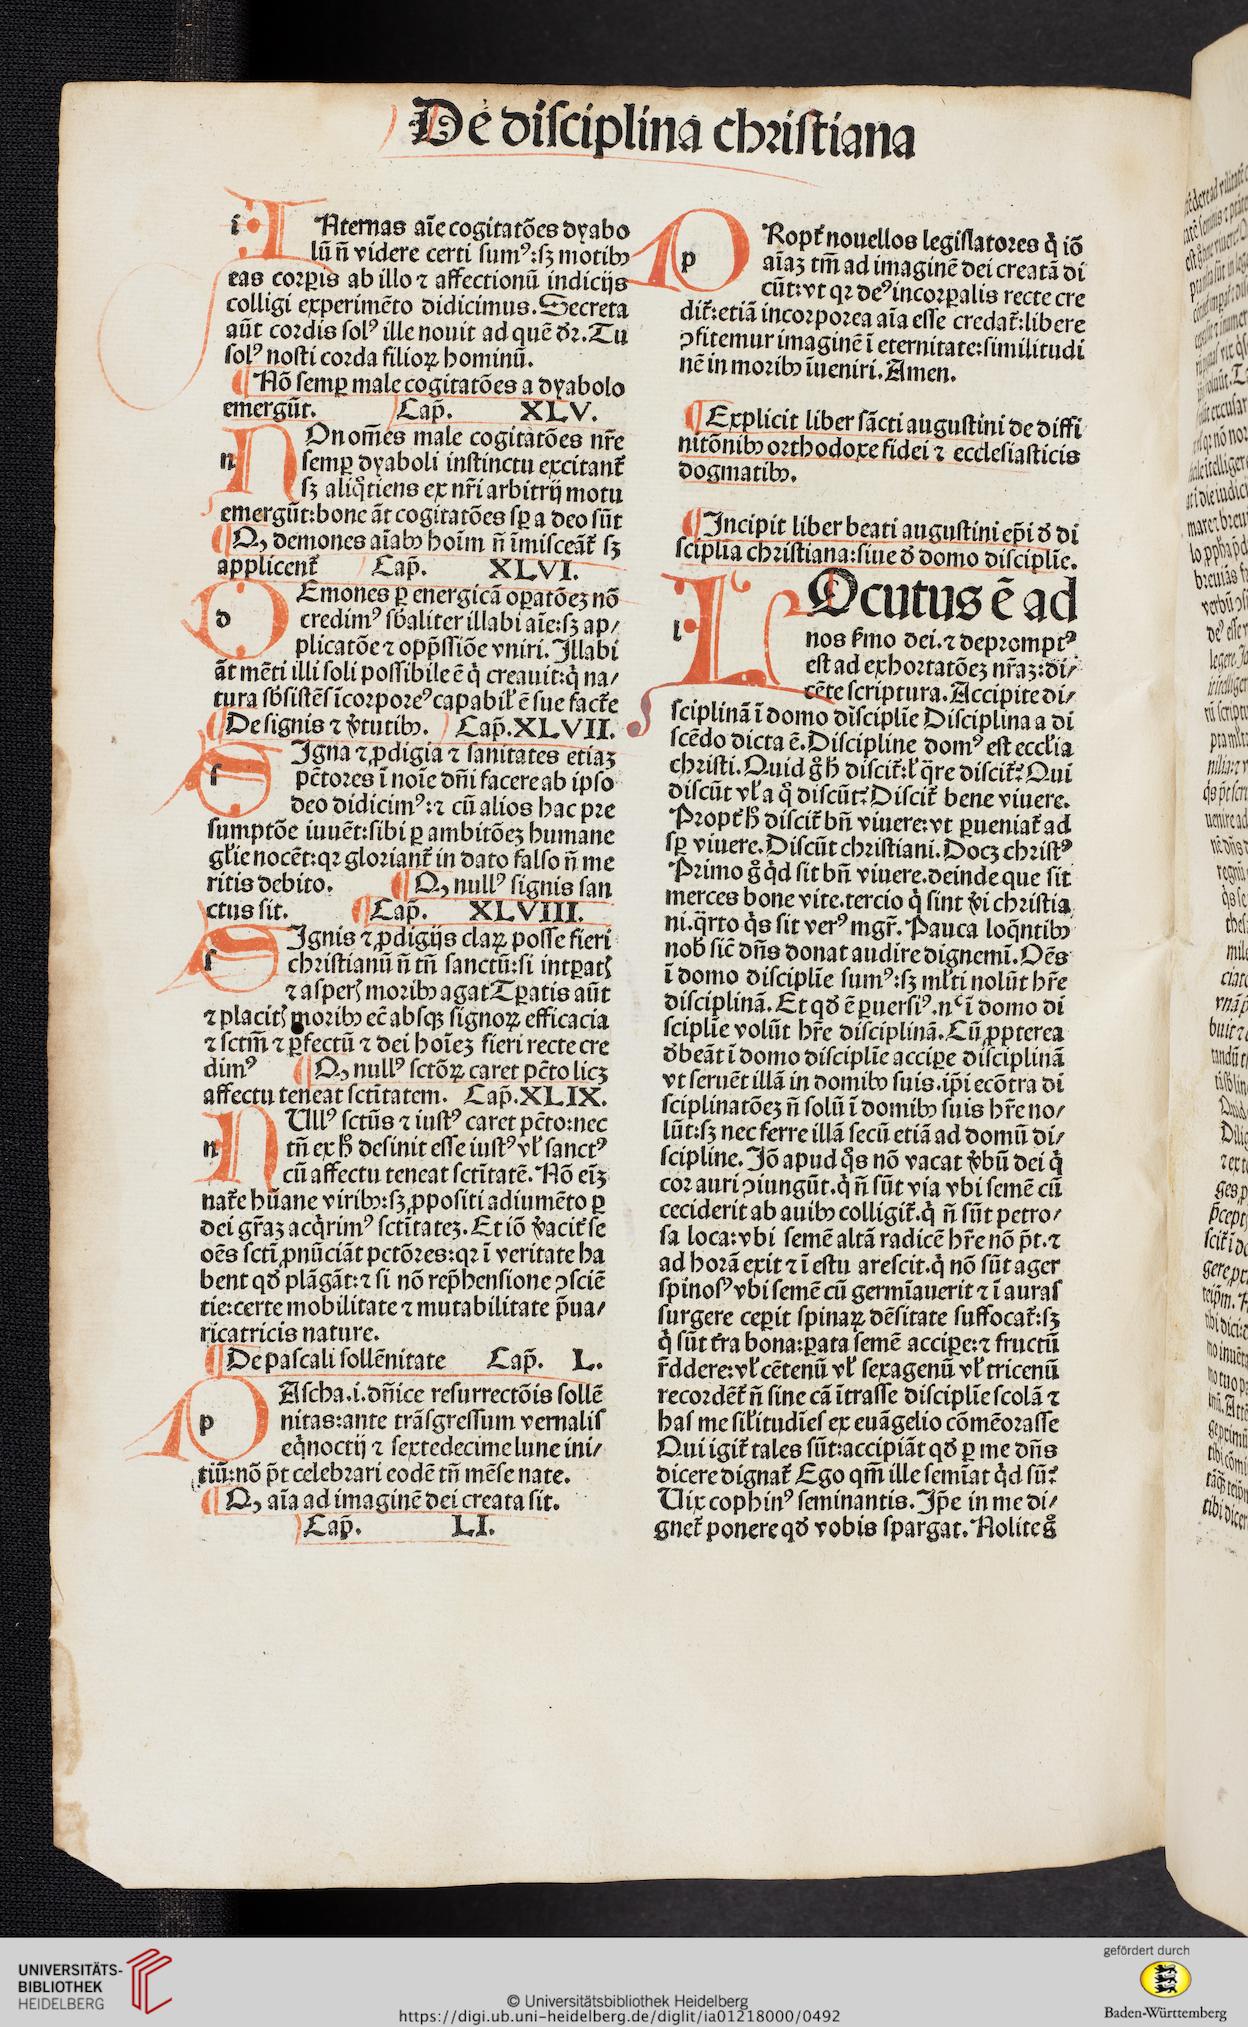 De disciplina christiana
INternas aīe cogitatões dyabo
lū n̄ videre certi sumꝰ: sꝫ motibꝰ
eas corꝑis ab illo ⁊ affectionū indicijs
colligi experimēto didicimus. Secreta
aūt cordis solꝰ ille nouit ad quē dr̄. Tu
solꝰ nosti corda filioꝝ hominū.
¶ Nō semꝑ male cogitatões a dyabolo
emergūt. Cap̄. XLV.
NOn om̄es male cogitatões nr̄e
semꝑ dyaboli instinctu excitant᷑
sꝫ aliqͦtiens ex nr̄i arbitrij motu
emergūt: bone āt cogitatões sꝑ a deo sūt
¶ Qꝫ demones aīabꝰ hoīm n̄ īmisceāt᷑ sꝫ
applicent᷑ Cap̄. XLVI.
DEmones ꝑ energicā oꝑatõeꝫ nō
credimꝰ sb̄aliter illabi aīe: sꝫ ap/
plicatõe ⁊ opp̄ssiõe vniri. Illabi
āt mēti illi soli possibile ē q̇ creauit: q̇ na/
tura sb̄sistēs īcorporeꝰ capabil̓ ē sue fact᷑e
¶ De signis ⁊ v̓tutibꝰ. Cap̄. XLVII.
SIgna ⁊ ꝓdigia ⁊ sanitates etiaꝫ
pc̄tores ī noīe dn̄i facere ab ipso
deo didicimꝰ: ⁊ cū alios hac pre
sumptõe iuuēt: sibi ꝑ ambitõeꝫ humane
gl̓ie nocēt: qꝛ gloriant᷑ in dato falso n̄ me
ritis debito. ¶ Qꝫ nullꝰ signis san
ctus sit. ¶ Cap̄. XLVIII.
SIgnis ⁊ ꝓdigijs claꝝ posse fieri
christianū n̄ tn̄ sanctū: si intꝑatꝭ
⁊ asperꝭ moribꝰ agat Tꝑatis aūt
⁊ placitꝭ moribꝰ ec̄ absqꝫ signoꝝ efficacia
⁊ sctm̄ ⁊ ꝑfectū ⁊ dei hoīeꝫ fieri recte cre
dimꝰ ¶ Qꝫ nullꝰ sctõꝝ caret pc̄to licꝫ
affectu teneat sctītatem. Cap̄. XLIX.
NUllꝰ sctūs ⁊ iustꝰ caret pc̄to: nec
tn̄ ex hͦ desinit esse iustꝰ vl̓ sanctꝰ
cū affectu teneat sctītatē. Nō eīꝫ
nat᷑e hūane viribꝰ: sꝫ ꝓpositi adiumēto ꝑ
dei gr̄aꝫ acq̇rimꝰ sctītateꝫ. Et iō v̓acit᷑ se
oēs scti ꝓnūciāt pctōres: qꝛ ī veritate ha
bent qd̓ plāgāt: ⁊ si nō rep̄hensione ꝯsciē
tie: certe mobilitate ⁊ mutabilitate p̄ua/
ricatricis nature.
¶ De pascali sollēnitate Cap̄. L.
PAscha .i. dn̄ice resurrectõis sollē
nitas: ante trāsgressum vernalis
eq̇noctij ⁊ sextedecime lune ini/
tiū: nō p̄t celebrari eodē tn̄ mēse nate.
¶ Qꝫ aīa ad imaginē dei creata sit.
Cap̄. LI.
PRopt᷑ nouellos legislatores q̇ iō
aīaꝫ tm̄ ad imaginē dei creatā di
cūt: vt qꝛ deꝰ incorꝑalis recte cre
dit᷑: etiā incorporea aīa esse credat᷑: libere
ꝯfitemur imaginē ī eternitate: similitudi
nē in moribꝰ īueniri. Amen.
¶ Explicit liber sācti augustini de diffi
nitõnibꝰ orthodoxe fidei ⁊ ecclesiasticis
dogmatibꝰ.
¶ Incipit liber beati augustini ep̄i d̓ di
sciplīa christiana: siue d̓ domo disciplīe.
LOcutus ē ad
nos s̓mo dei. ⁊ depromptꝰ
est ad exhortatõeꝫ nr̄aꝫ: di/
cēte scriptura. Accipite di/
sciplinā ī domo disciplīe Disciplina a di
scēdo dicta ē. Discipline domꝰ est eccl̓ia
christi. Quid gͦ hͨ discit᷑: l̓ q̄re discit᷑? Qui
discūt vl̓ a qͦ discūt? Discit᷑ bene viuere.
Propt᷑ hͦ discit᷑ bn̄ viuere: vt ꝑueniat᷑ ad
sꝑ viuere. Discūt christiani. Docꝫ christꝰ
Primo gͦ q̇d sit bn̄ viuere. deinde que sit
merces bone vite. tercio q̇ sint v̓i christia
ni. q̄rto q̇s sit verꝰ mgr̄. Pauca loq̄ntibꝰ
nob̓ sic̄ dn̄s donat audire dignemī. Oēs
ī domo disciplīe sumꝰ: sꝫ ml̓ti nolūt hr̄e
disciplinā. Et qd̓ ē ꝑuersiꝰ. nͨ ī domo di
sciplīe volūt hr̄e disciplinā. Cū ꝓpterea
d̓beāt ī domo disciplīe acciꝑe disciplinā
vt seruēt illā in domibꝰ suis. ip̄i ecōtra di
sciplinatõeꝫ n̄ solū ī domibꝰ suis hr̄e no/
lūt: sꝫ nec ferre illā secū etiā ad domū di/
scipline. Iō apud qͦs nō vacat v̓bū dei q̇
cor auri ꝯiungūt. q̇ n̄ sūt via vbi semē cū
ceciderit ab auibꝰ colligit᷑. q̇ n̄ sūt petro/
sa loca: vbi semē altā radicē hr̄e nō p̄t. ⁊
ad horā exit ⁊ ī estu arescit. q̇ nō sūt ager
spinosꝰ vbi semē cū germīauerit ⁊ ī auras
surgere ceꝑit spinaꝝ dēsitate suffocat᷑: sꝫ
q̇ sūt t᷑ra bona: ꝑata semē acciꝑe: ⁊ fructū
r̄ddere: vl̓ cētenū vl̓ sexagenū vl̓ tricenū
recordēt᷑ n̄ sine cā ītrasse disciplīe scolā ⁊
has me sil̓itudīes ex euāgelio cōmēorasse
Qui igit᷑ tales sūt: accipiāt qd̓ ꝑ me dn̄s
dicere dignat᷑ Ego qm̄ ille semīat q̇d sū?
Uix cophinꝰ seminantis. Ip̄e in me di/
gnet᷑ ponere qd̓ vobis spargat. Nolite gͦ
UNIVERSITÄTS-
BIBLIOTHEK
HEIDELBERG
© Universitätsbibliothek Heidelberg
https://digi.ub.uni-heidelberg.de/diglit/ia01218000/0492
gefördert durch
Baden-Württemberg